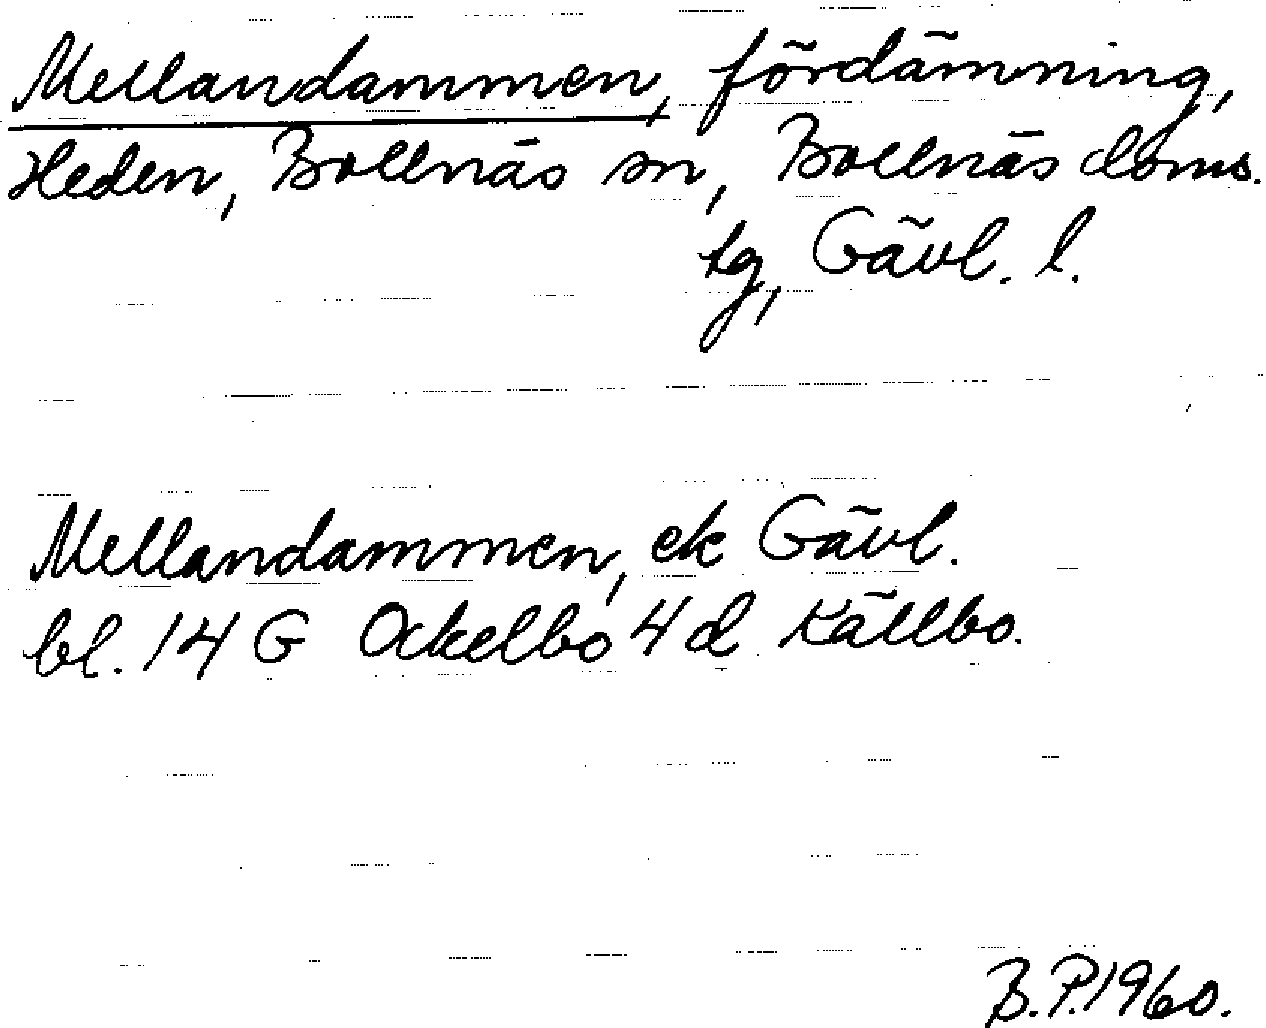 Mellandammen, fördämning,
Heden, Bollnäs sn, Bollnäs doms.
tg, Gävl. l.
Mellandammen, ek Gävl.
bl. 14 G Ockelbo 4 d Källbo.
B.P. 1960.